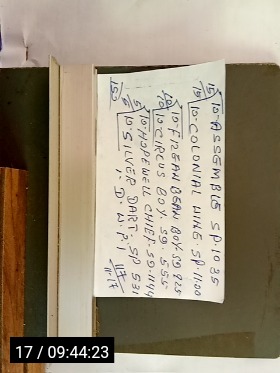 15 10-ASSEMBLE SP.1035
15 10-COLONIAL WINE. SP.1100
10 10-FIZEAN BEAN BOY SQ 925
10 10-CIRCUS BOY. SQ. 555
5 10-HOPEWELL CHIEF-SQ.1144
5 10-SILVER DART. SP 531
150
I. D. W. P.
117
17 / 09:44:23